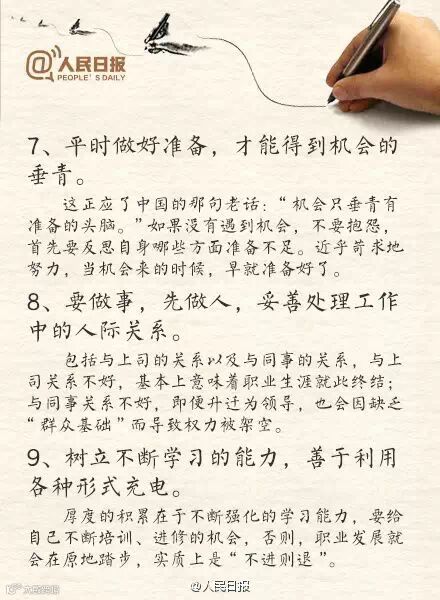 @人民日报
PEOPLE'S DAILY
7、平时做好准备，才能得到机会的
垂青。
这正应了中国的那句老话：“机会只垂青有
准备的头脑。”如果没有遇到机会，不要抱怨，
首先要反思自身哪些方面准备不足。近乎苛求地
努力，当机会来的时候，早就准备好了。
8、要做事，先做人，妥善处理工作
中的人际关系。
包括与上司的关系以及与同事的关系，与上
司关系不好，基本上意味着职业生涯就此终结；
与同事关系不好，即便升迁为领导，也会因缺乏
“群众基础”而导致权力被架空。
9、树立不断学习的能力，善于利用
各种形式充电。
厚度的积累在于不断强化的学习能力，要给
自己不断培训、进修的机会，否则，职业发展就
会在原地踏步，实质上是“不进则退”。
@人民日报